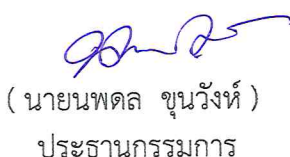 ( นายนพดล ขุนวังห์ )
ประธานกรรมการ